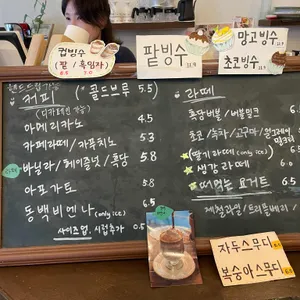 컵빙수
(팥 / 흑임자)
팥빙수
망고빙수
초코빙수
핸드드립 가능
커피 (* 콜드브루 5.5
(디카페인 가능)
아메리카노 4.5
카페라떼 / 카푸치노 5.3
바닐라 / 헤이즐넛 / 흑당 5.8
아포가토 5.8
동백비엔나 (only ice) 6.5
사이즈업, 시럽추가 0.5
라떼
흑당버블 / 버블밀크
초코 / 녹차 / 고구마 /
(딸기라떼 (only ice)
생강라떼
떠먹는 요거트
자두스무디
복숭아스무디